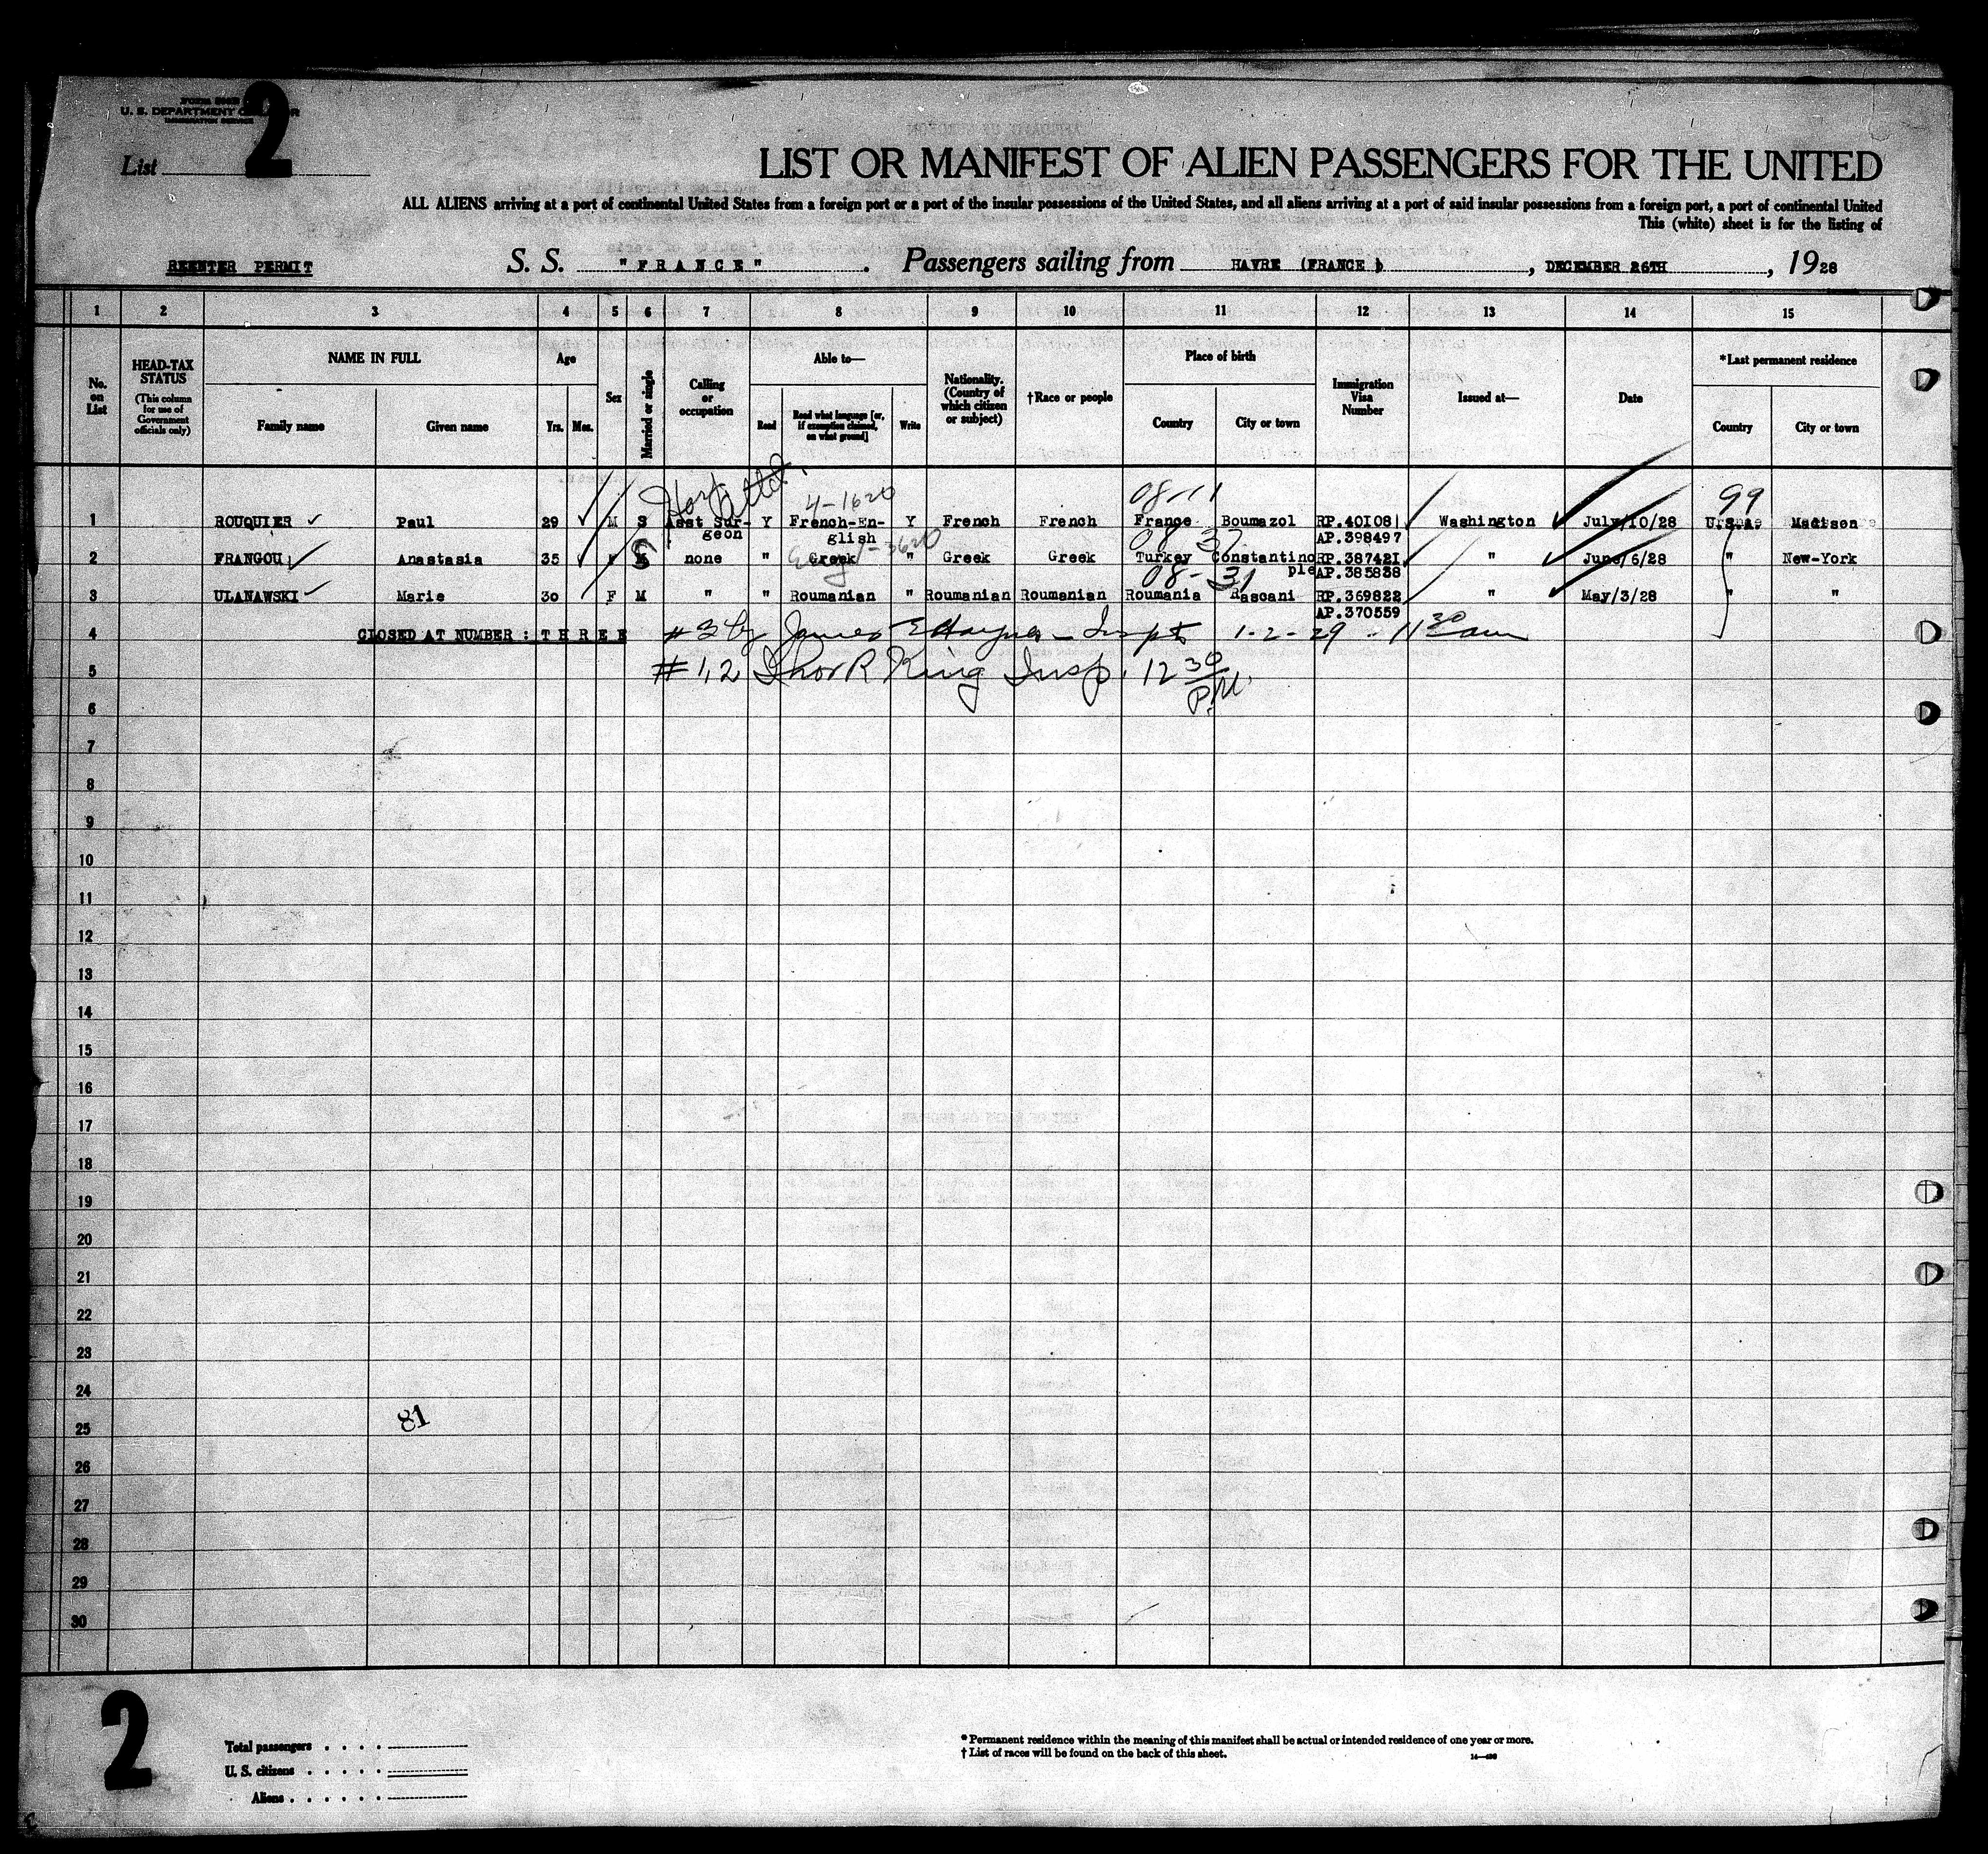 U. S. DEPARTMENT OF LABOR
IMMIGRATION SERVICE
List 2
LIST OR MANIFEST OF ALIEN PASSENGERS FOR THE UNITED
ALL ALIENS arriving at a port of continental United States from a foreign port or a port of the insular possessions of the United States, and all aliens arriving at a port of said insular possessions from a foreign port, a port of continental United
This (white) sheet is for the listing of
REENTER PERMIT S. S. "FRANCE". Passengers sailing from HAVRE (FRANCE), DECEMBER 26TH, 1928
1 2 3 4 5 6 7 8 9 10 11 12 13 14 15
No. on List
HEAD-TAX STATUS (This column for use of Government officials only)
NAME IN FULL
Family name Given name
Age
Yrs. Mos.
Sex
Married or single
Calling or occupation
Able to—
Read Read what language [or, if exemption claimed, on what ground] Write
Nationality. (Country of which citizen or subject)
†Race or people
Place of birth
Country City or town
Immigration Visa Number
Issued at—
Date
*Last permanent residence
Country City or town
4-1620 08-11 99
1 ROUQUIER Paul 29 M S Asst Sur- Y French-En- Y French French France Boumazol RP.40108 Washington July/10/28 U.S.A. Madison
geon glish AP.398497
2 FRANGOU Anastasia 35 F S none " Greek " Greek Greek Turkey Constantino RP.387421 " June/6/28 " New-York
ple AP.385838
08-31
3 ULANAWSKI Marie 30 F M " " Roumanian " Roumanian Roumanian Roumania Rascani RP.369822 " May/3/28 " "
AP.370559
4 CLOSED AT NUMBER : THREE #3 by James E Haynes - Inspt 1-2-29 - 11 30 am
5 #1,2 Thor R King Insp. 12 30 P.M.
6
7
8
9
10
11
12
13
14
15
16
17
18
19
20
21
22
23
24
25 81
26
27
28
29
30
2
Total passengers . . . .
U. S. citizens . . . . .
Aliens . . . . . .
* Permanent residence within the meaning of this manifest shall be actual or intended residence of one year or more.
† List of races will be found on the back of this sheet.